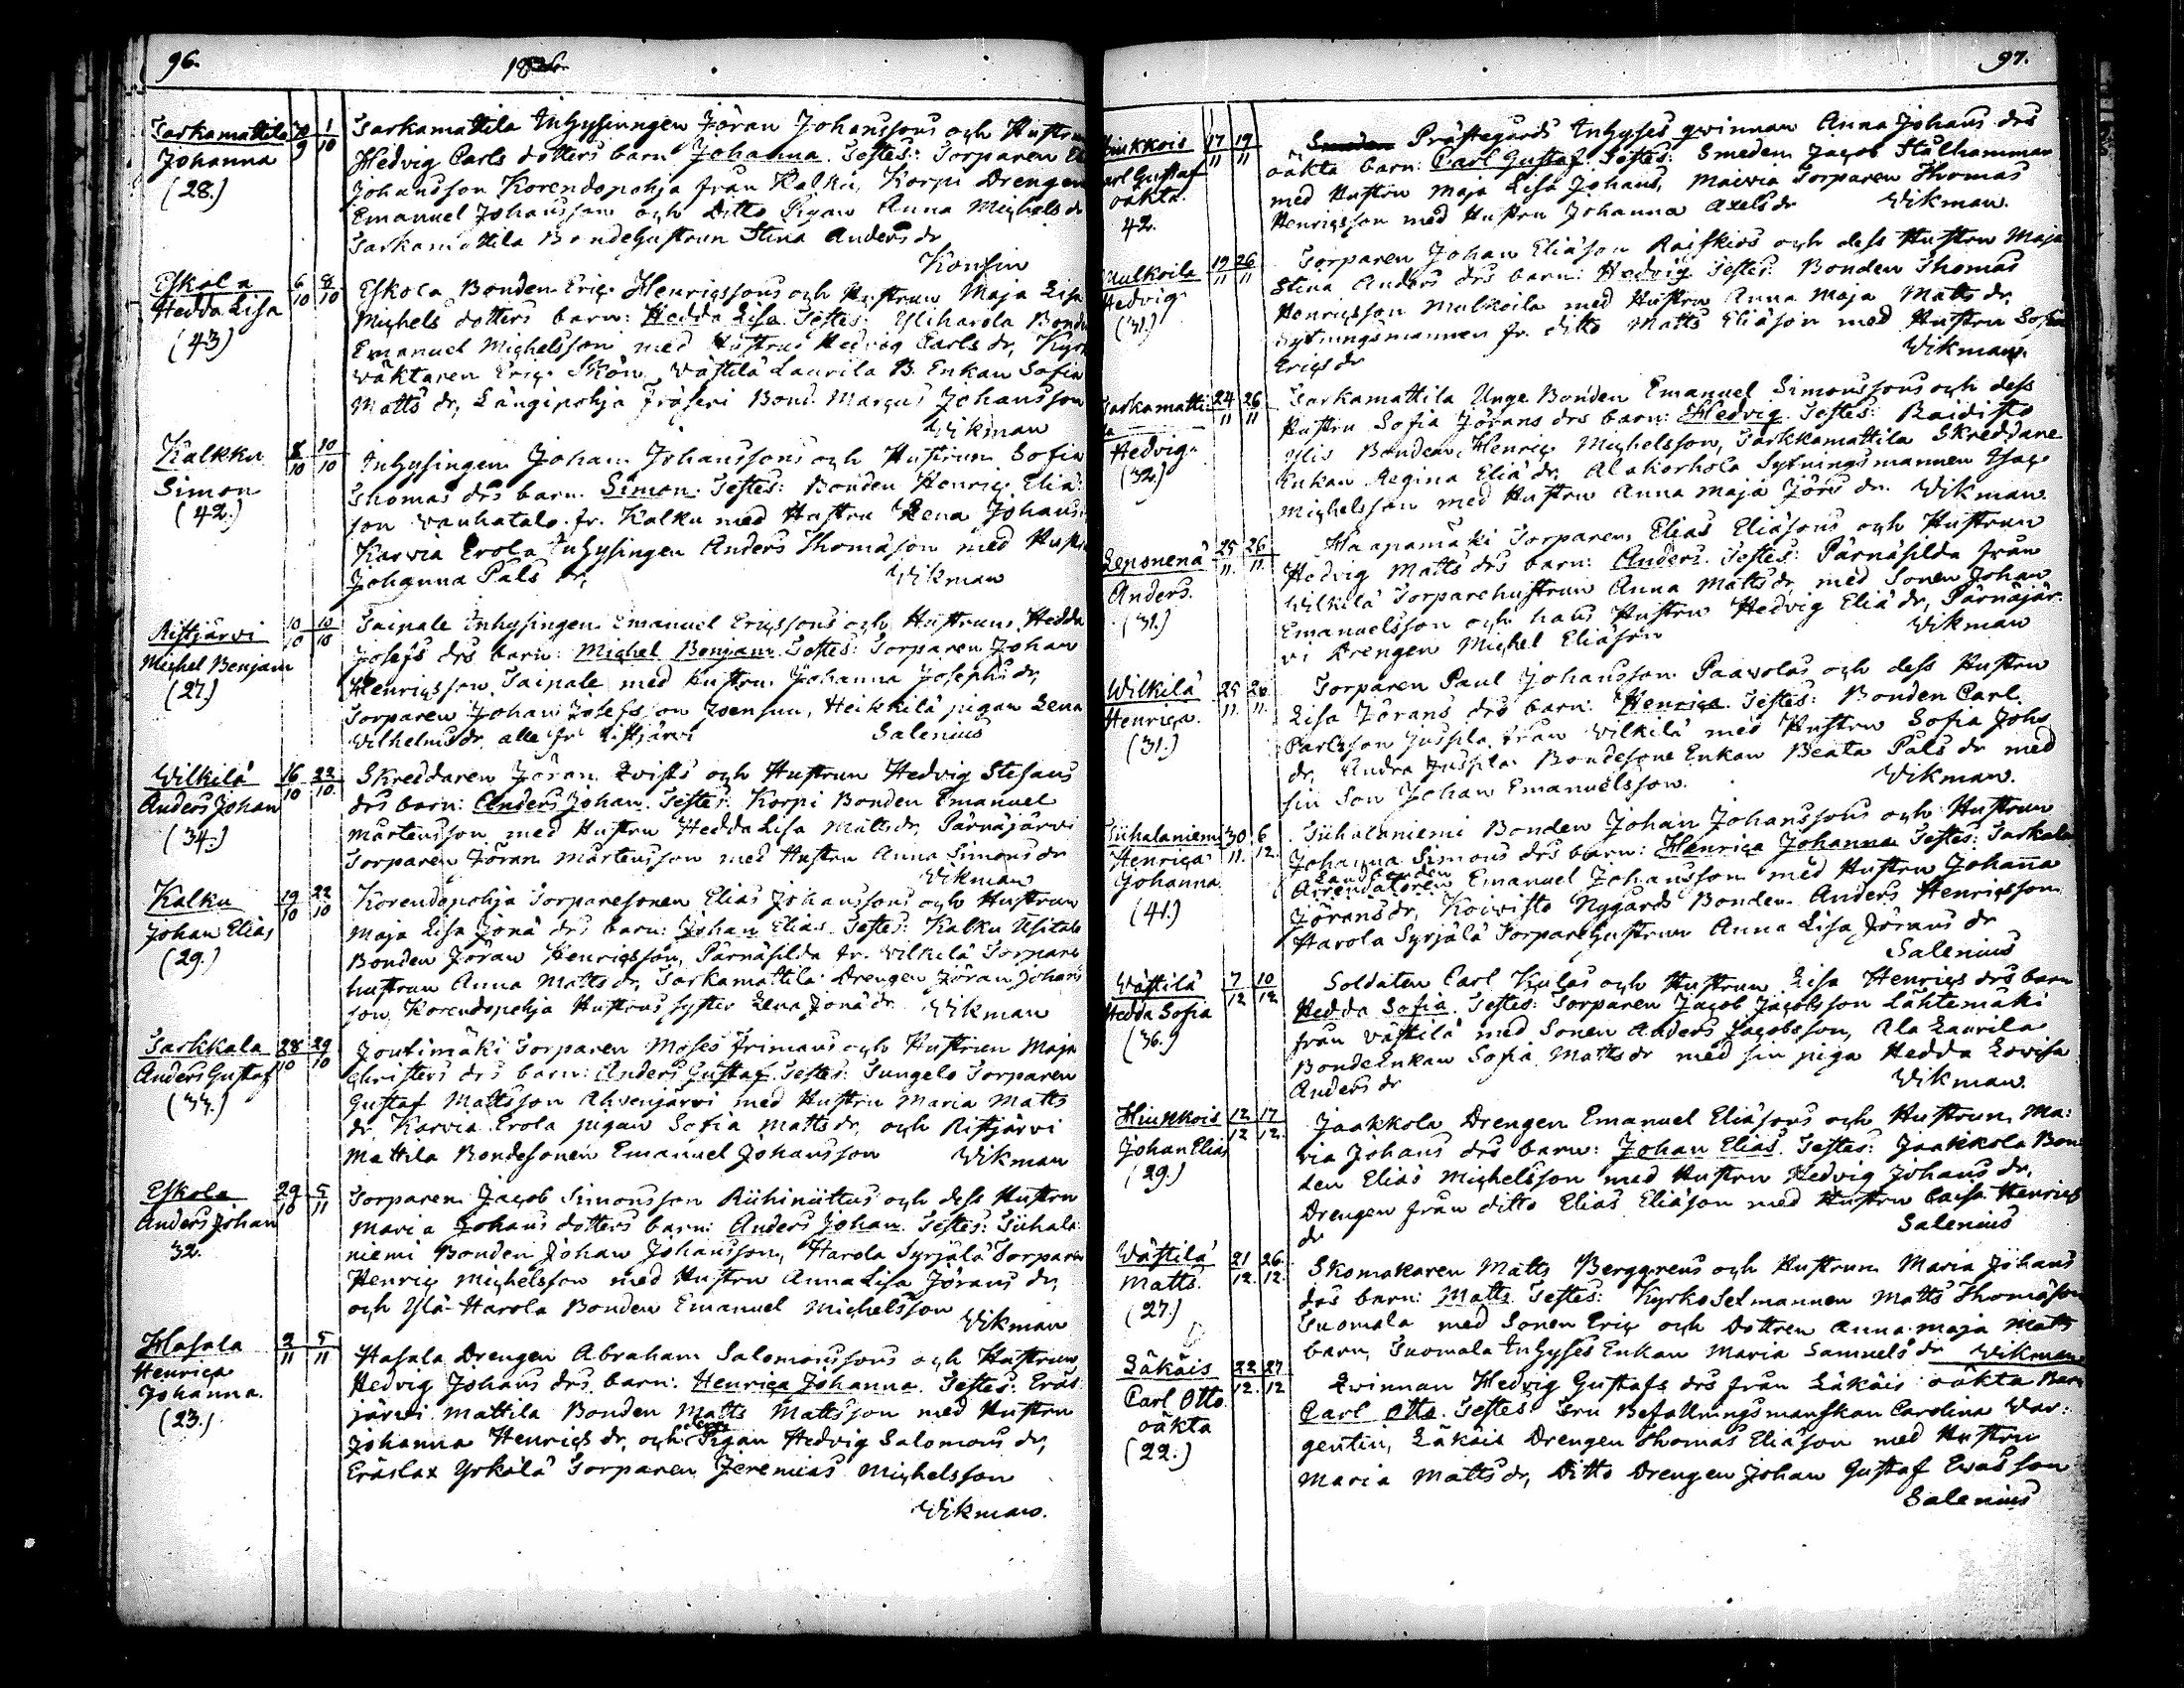 96.
1826
Sarkamattila 30/9 1/10 Sarkamattila Inhysingen Jöran Johanssons och Hustrun
Johanna Hedvig Carls dotters barn Johanna. Testes: Torparen
(28.) Johansson Korendopohja från Kalku, Korpi Drengen
Emanuel Johansson och Ditto Pigan Anna Michels dr
Sarkamattila BondeHustrun Stina Anders dr
Konsin
Eskola 6/10 8/10 Eskola Bonden Eric Henricssons och Hustrun Maja Lisa
Hedda Lisa Michels dotters barn: Hedda Lisa. Testes: Yliharola Bonden
(43) Emanuel Michelsson med Hustru Hedvig Carls dr, Kyrk
väktaren Eric Skön, Västilä Laurila B. Enkan Sofia
Matts dr, Längipohja Fräseri Bond. Marcus Johansson
Wikman
Kalkku 8/10 10/10 Inhysingen Johan Johanssons och Hustrun Sofia
Simon Thomas drs barn. Simon. Testes: Bonden Henric Elia
(42.) son Vanhatalo fr. Kalku med Hustru Lena Johans
Karvia Erola Inhysingen Anders Thomason med Hustru
Johanna Påls dr,
Wikman
Ristjärvi 10/10 10/10 Taipale Inhysingen Emanuel Ericssons och Hustruns Hedda
Michel Benjam Josefs drs barn: Michel Benjam. Testes: Torparen Johan
(27.) Henricsson Taipale med Hustru Johanna Josephs dr,
Torparen Johan Josefsson Joensuu, Heikkilä pigan Lena
Wilhelms dr, alla fr Ristjärvi Salenius
Wilkilä 16/10 22/10 Skreddaren Jöran Qvists och Hustrun Hedvig Stefans
Anders Johan drs barn: Anders Johan. Testes: Korpi Bonden Emanuel
(34.) Mårtensson med Hustru Hedda Lisa Mattsdr, Pärnäjärvi
Torparen Jöran Mårtensson med Hustru Anna Simons dr
Wikman
Kalku 19/10 22/10 Korendopohja Torparesonen Elias Johanssons och Hustrun
Johan Elias Maja Lisa Jona drs barn: Johan Elias. Testes: Kalku Usitalo
(29.) Bonden Jöran Henricsson, Pärnäsilda fr. Wilkilä Torpare
hustrun Anna Matts dr, Sarkamattila Drengen Jöran Johans
son, Korendopohja Hustrus syster Lena Jona dr Wikman
Sarkkala 28/10 29/10 Joutimäki Torparen Moses Frimans och Hustrun Maja
Anders Gustaf Christers drs barn: Anders Gustaf. Testes: Tungelo Torparen
(33.) Gustaf Mattsson Ahvenjärvi med Hustru Maria Matts
dr, Karvia Erola pigan Sofia Matts dr, och Ristjärvi
Mattila Bondesonen Emanuel Johansson Wikman
Eskola 29/10 5/11 Torparen Jacob Simonsson Riihiniittus och dess Hustru
Anders Johan Maria Johans dotters barn: Anders Johan. Testes: Siihala
32. niemi Bonden Johan Johansson, Harola Syrjälä Torparen
Henric Michelsson med Hustru Anna Lisa Jörans dr,
och Ylä-Harola Bonden Emanuel Michelsson
Wikman
Hasala 2/11 5/11 Hasala Drengen Abraham Salomonssons och Hustrun
Henrica Hedvig Johans drs barn: Henrica Johanna. Testes: Eräs
Johanna. järvi Mattila Bonden Matts Mattsson med Hustru
(23.) Johanna Henrics dr, och Pigan Hedvig Salomons dr,
Eräslax Yrkölä Torparen Jeremias Michelsson
Wikman.
97.
Hinkkois 17/11 19/11 Prästegårds Inhyses qvinnan Anna Johans drs
Carl Gustaf oäkta barn: Carl Gustaf. Testes: Smeden Jacob Stålhammar
oäkta. med Hustru Maja Lisa Johans, Torparen Thomas
42. Henricsson med Hustru Johanna Axels dr Wikman
Mulkoila 19/11 26/11 Torparen Johan Eliäson Raiskios och dess Hustru Maja
Hedvig Stina Anders drs barn: Hedvig. Testes: Bonden Thomas
(31.) Henricsson Mulkoila med Hustru Anna Maja Matts dr,
Sytningsmannen fr. ditto Matts Eliäson med Hustru Sofia
Erics dr
Wikman.
Sarkamatti 24/11 26/11 Sarkamattila Unge Bonden Emanuel Simonssons och dess
la Hustru Sofia Jörans drs barn: Hedvig. Testes: Raidisto
Hedvig Ylis Bonden Henric Michelsson, Sarkkamattila Skreddare
(32.) Enkan Regina Eliä dr, Alakorhola Sytningsmannen Isac
Michelsson med Hustru Anna Maja Jörs dr. Wikman
Leponenä 25/11 26/11 Haapamäki Torparen Elias Eliäsons och Hustrun
Anders. Hedvig Matts drs barn: Anders. Testes: Pärnäsilda från
(31.) Wilkilä Torparehustrun Anna Matts dr med Sonen Johan
Emanuelsson och hans Hustru Hedvig Eliä dr, Pärnäjär
vi Drengen Michel Eliäson Wikman
Wilkilä 25/11 26/11 Torparen Paul Johansson Paavolas och dess Hustru
Henrica. Lisa Jörans drs barn: Henrica. Testes: Bonden Carl
(31.) Carlsson Jussila från Wilkilä med Hustru Sofia Johs
dr, Andra Jussila Bondesone Enkan Beata Påls dr med
sin Son Johan Emanuelsson.
Wikman.
Siihalaniemi 30/11 6/12 Siihalaniemi Bonden Johan Johanssons och Hustrun
Henrica Johanna Simons drs barn: Henrica Johanna. Testes: Sarkala
Johanna. Landbonden
(41.) Arrendatoren Emanuel Johansson med Hustru Johanna
Jörans dr, Koivisto Nygårds Bonden Anders Henricsson
Harola Syrjälä TorpareHustrun Anna Lisa Jörans dr
Salenius
Västilä 7/12 10/12 Soldaten Carl Kulas och Hustrun Lisa Henrics drs barn
Hedda Sofia Hedda Sofia. Testes: Torparen Jacob Jacobsson Lähtemäki
(36.) från Västilä med Sonen Anders Jacobsson, Ala Laurila
BondeEnkan Sofia Matts dr med sin piga Hedda Lovisa
Anders dr
Wikman
Hinkkois 12/12 17/12 Jaakkola Drengen Emanuel Eliäsons och Hustrun Ma:
Johan Elias ria Johans drs barn: Johan Elias. Testes: Jaakkola Bon
(29.) den Elias Michelsson med Hustru Hedvig Johans dr,
Drengen från ditto Elias Eliäson med Hustru Caisa Henrics
dr
Salenius
Västilä 21/12 26/12 Skomakaren Matts Berggrens och Hustrun Maria Johans
Matts. drs barn: Matts. Testes: Kyrko Sexmannen Matts Thomäson
(27.) Tuomala med Sonen Eric och Dottren Anna Maja Matts
barn, Tuomala Inhyses Enkan Maria Samuels dr Wikman
Säkäis 22/12 27/12 Qvinnan Hedvig Gustafs drs från Säkäis oäkta Barn
Carl Otto Carl Otto. Testes: Fru Befallningsmanskan Carolina War:
oäkta gentin, Säkäis Drengen Thomas Eliäson med Hustru
(22.) Maria Matts dr, Ditto Drengen Johan Gustaf Evasson
Salenius